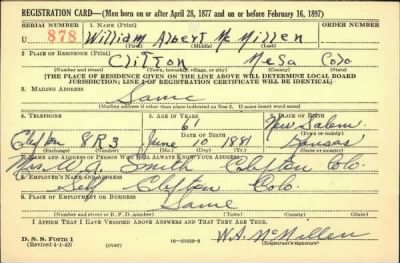 REGISTRATION CARD—(Men born on or after April 28, 1877 and on or before February 16, 1897)
SERIAL NUMBER 1. NAME (Print) ORDER NUMBER
U 878 William Albert McMillen
(First) (Middle) (Last)
2. PLACE OF RESIDENCE (Print)
Clifton Mesa Colo
(Number and street) (Town, township, village, or city) (County) (State)
[THE PLACE OF RESIDENCE GIVEN ON THE LINE ABOVE WILL DETERMINE LOCAL BOARD
JURISDICTION; LINE 2 OF REGISTRATION CERTIFICATE WILL BE IDENTICAL]
3. MAILING ADDRESS
Same
[Mailing address if other than place indicated on line 2. If same insert word same]
4. TELEPHONE 5. AGE IN YEARS 6. PLACE OF BIRTH
61 New Salem
DATE OF BIRTH (Town or county)
Clifton 8R3 June 10 1881 Kansas
(Exchange) (Number) (Mo.) (Day) (Yr.) (State or country)
7. NAME AND ADDRESS OF PERSON WHO WILL ALWAYS KNOW YOUR ADDRESS
Smith Clifton Colo.
8. EMPLOYER'S NAME AND ADDRESS
Self Clifton Colo.
9. PLACE OF EMPLOYMENT OR BUSINESS
Same
(Number and street or R. F. D. number) (Town) (County) (State)
I AFFIRM THAT I HAVE VERIFIED ABOVE ANSWERS AND THAT THEY ARE TRUE.
D. S. S. Form 1 W.A. McMillen
(Revised 4-1-42) (over) (Registrant's signature)